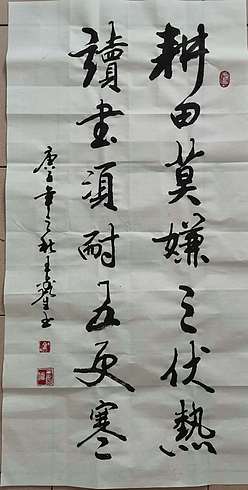 耕田莫嫌三伏熱
讀書須耐五更寒
庚子年之秋